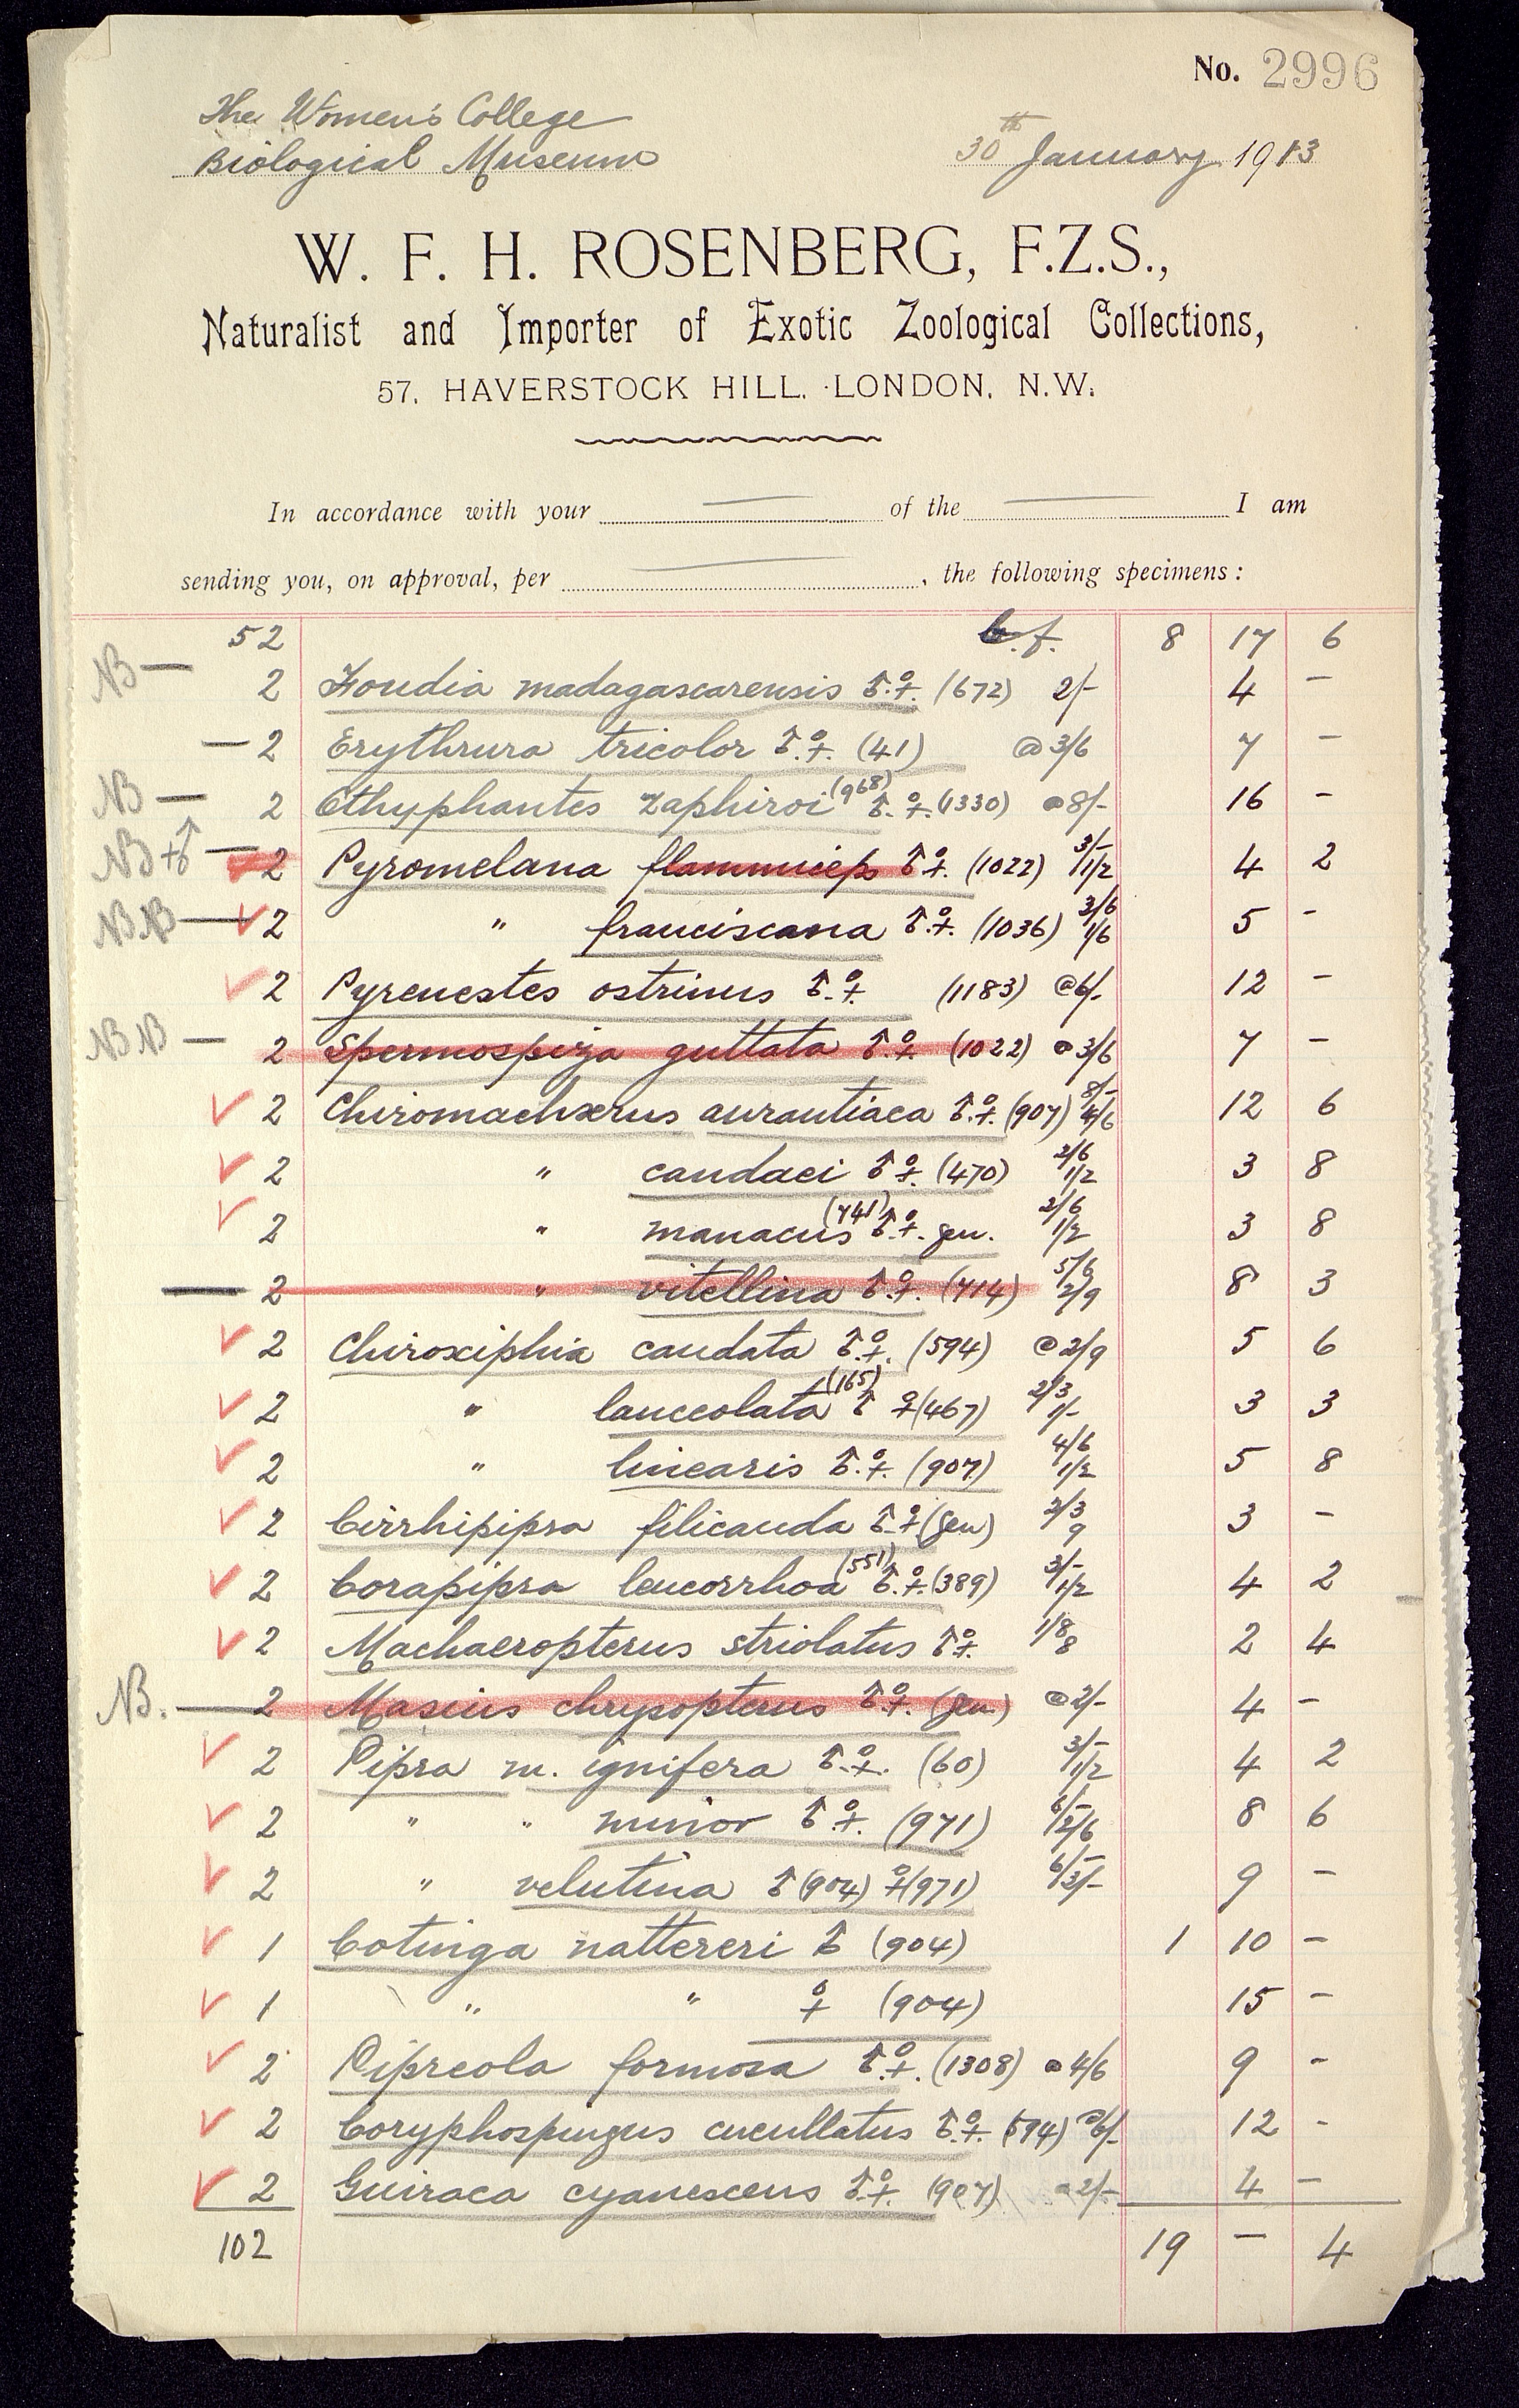 No. 2996
The Women's College
Biological Museum
30th January 1913
W. F. H. ROSENBERG, F.Z.S.,
Naturalist and Importer of Exotic Zoological Collections,
57, HAVERSTOCK HILL, LONDON, N.W.
In accordance with your — of the — I am
sending you, on approval, per — , the following specimens :
52 b.f. 8 17 6
NB — 2 Foudia madagascarensis ♂.♀. (672) 2/- 4 -
— 2 Erythrura tricolor ♂.♀. (41) @ 3/6 7 -
NB — 2 Ethyphantes zaphiroi (968) ♂.♀. (1330) @ 8/- 16 -
NB+♂ — 2 Pyromelana flammiceps ♂.♀. (1022) 3/- 1/2 4 2
NB NB — ✓ 2 " franciscana ♂.♀. (1036) 3/6 1/6 5 -
✓ 2 Pyrenestes ostrinus ♂.♀ (1183) @ 6/- 12 -
NB NB — 2 Spermospiza guttata ♂.♀ (1022) @ 3/6 7 -
✓ 2 Chiromachærus aurantiaca ♂.♀. (907) 8/- 4/6 12 6
✓ 2 " candaei ♂ ♀. (470) 2/6 1/2 3 8
✓ 2 " manacus (741) ♂.♀. gen. 2/6 1/2 3 8
— 2 " vitellina ♂.♀. (714) 5/6 2/9 8 3
✓ 2 Chiroxiphia caudata ♂.♀. (594) @ 2/9 5 6
✓ 2 " lanceolata (165) ♂ ♀ (467) 2/3 1/- 3 3
✓ 2 " linearis ♂.♀. (907) 4/6 1/2 5 8
✓ 2 Cirrhipipra filicauda ♂.♀ (gen) 2/3 9 3 -
✓ 2 Corapipra leucorrhoa (551) ♂.♀ (389) 3/- 1/2 4 2
✓ 2 Machaeropterus striolatus ♂♀. 1/8 8 2 4
NB. — 2 Masius chrysopterus ♂.♀. (gen.) @ 2/- 4 -
✓ 2 Pipra m. ignifera ♂.♀. (60) 3/- 1/2 4 2
✓ 2 " " minor ♂ ♀. (971) 6/- 2/6 8 6
✓ 2 " velutina ♂ (904) ♀ (971) 6/- 3/- 9 -
✓ 1 Cotinga nattereri ♂ (904) 1 10 -
✓ 1 " " ♀ (904) 15 -
✓ 2 Pipreola formosa ♂.♀. (1308) @ 4/6 9 -
✓ 2 Coryphospingus cucullatus ♂.♀. (594) @ 6/- 12 -
✓ 2 Guiraca cyanescens ♂.♀. (907) @ 2/- 4 -
102 19 - 4